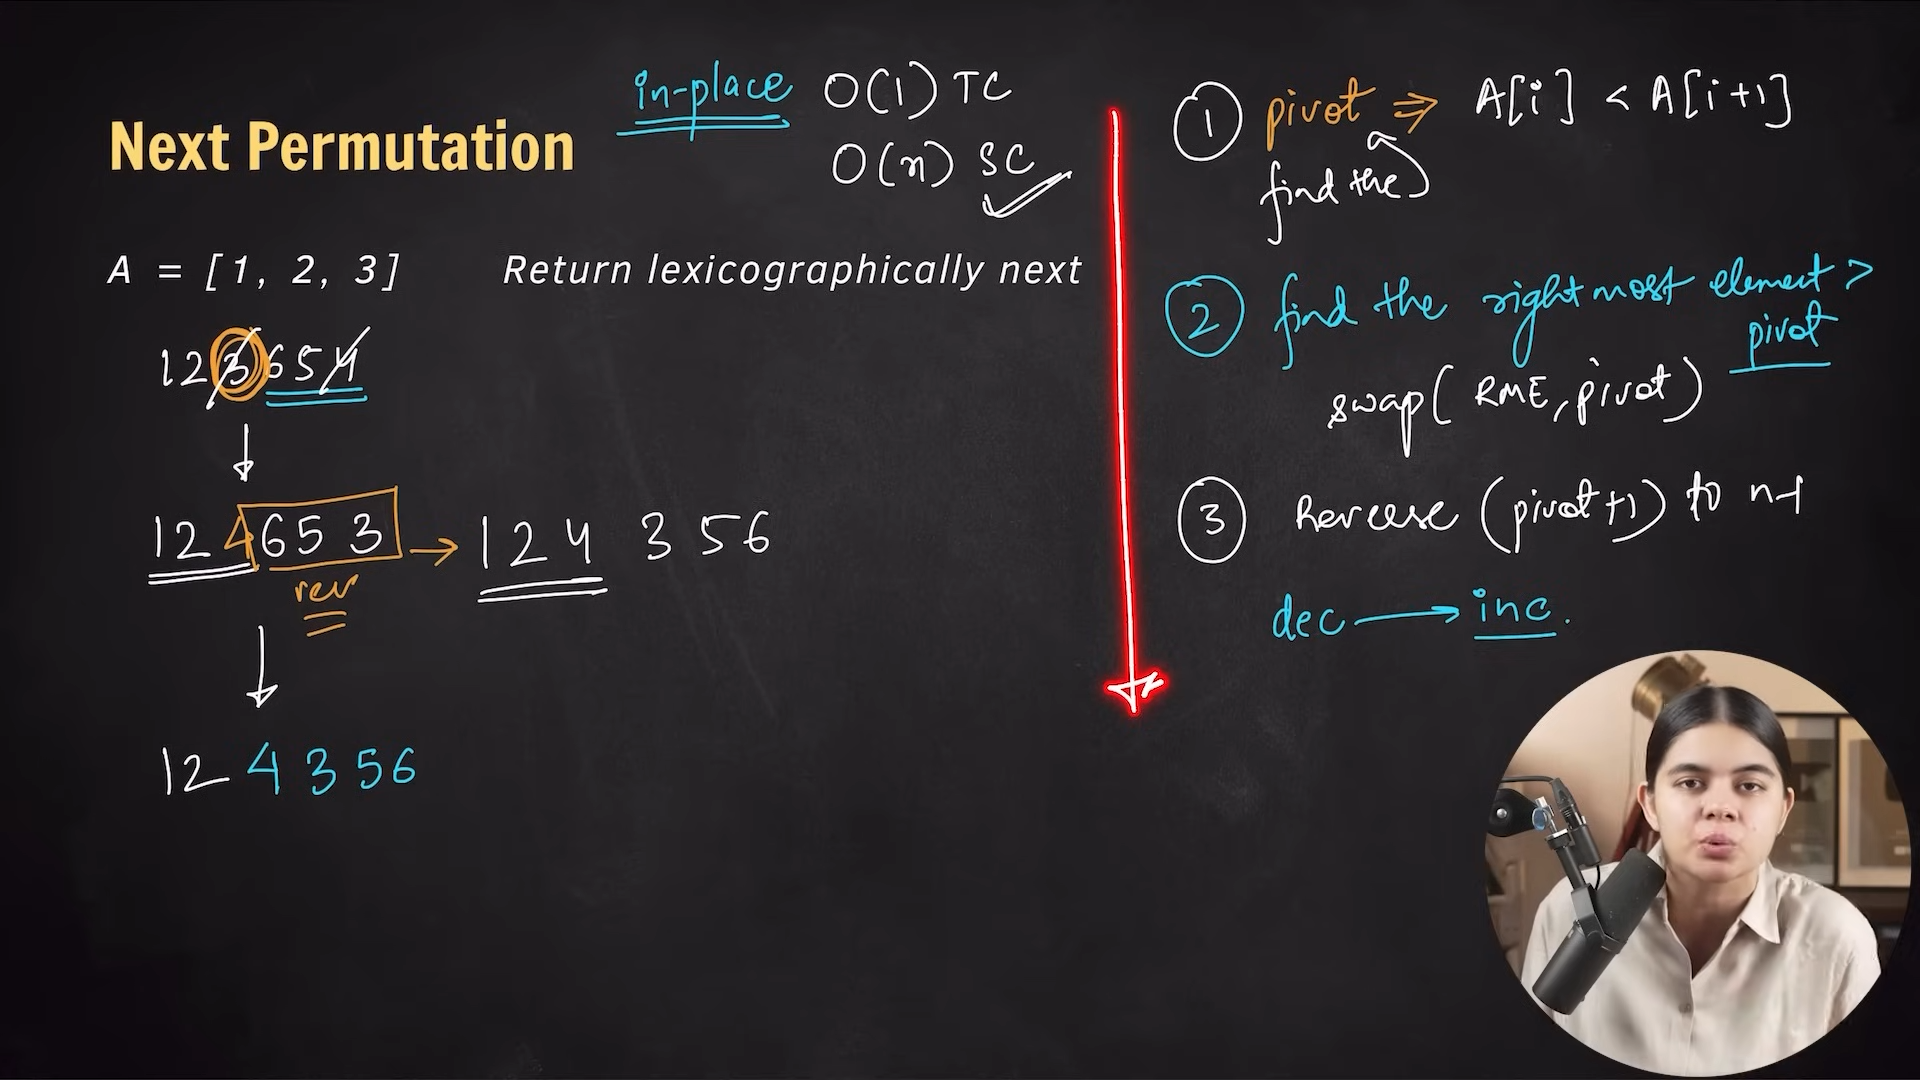 Next Permutation
in-place O(1) TC
O(n) SC
A = [1, 2, 3] Return lexicographically next
123654
124653
rev
124 356
12 4356
1 pivot ⇒ A[i] < A[i+1]
find the
2 find the right most element >
pivot
swap( RME, pivot)
3 Reverse (pivot+1) to n-1
dec → inc.